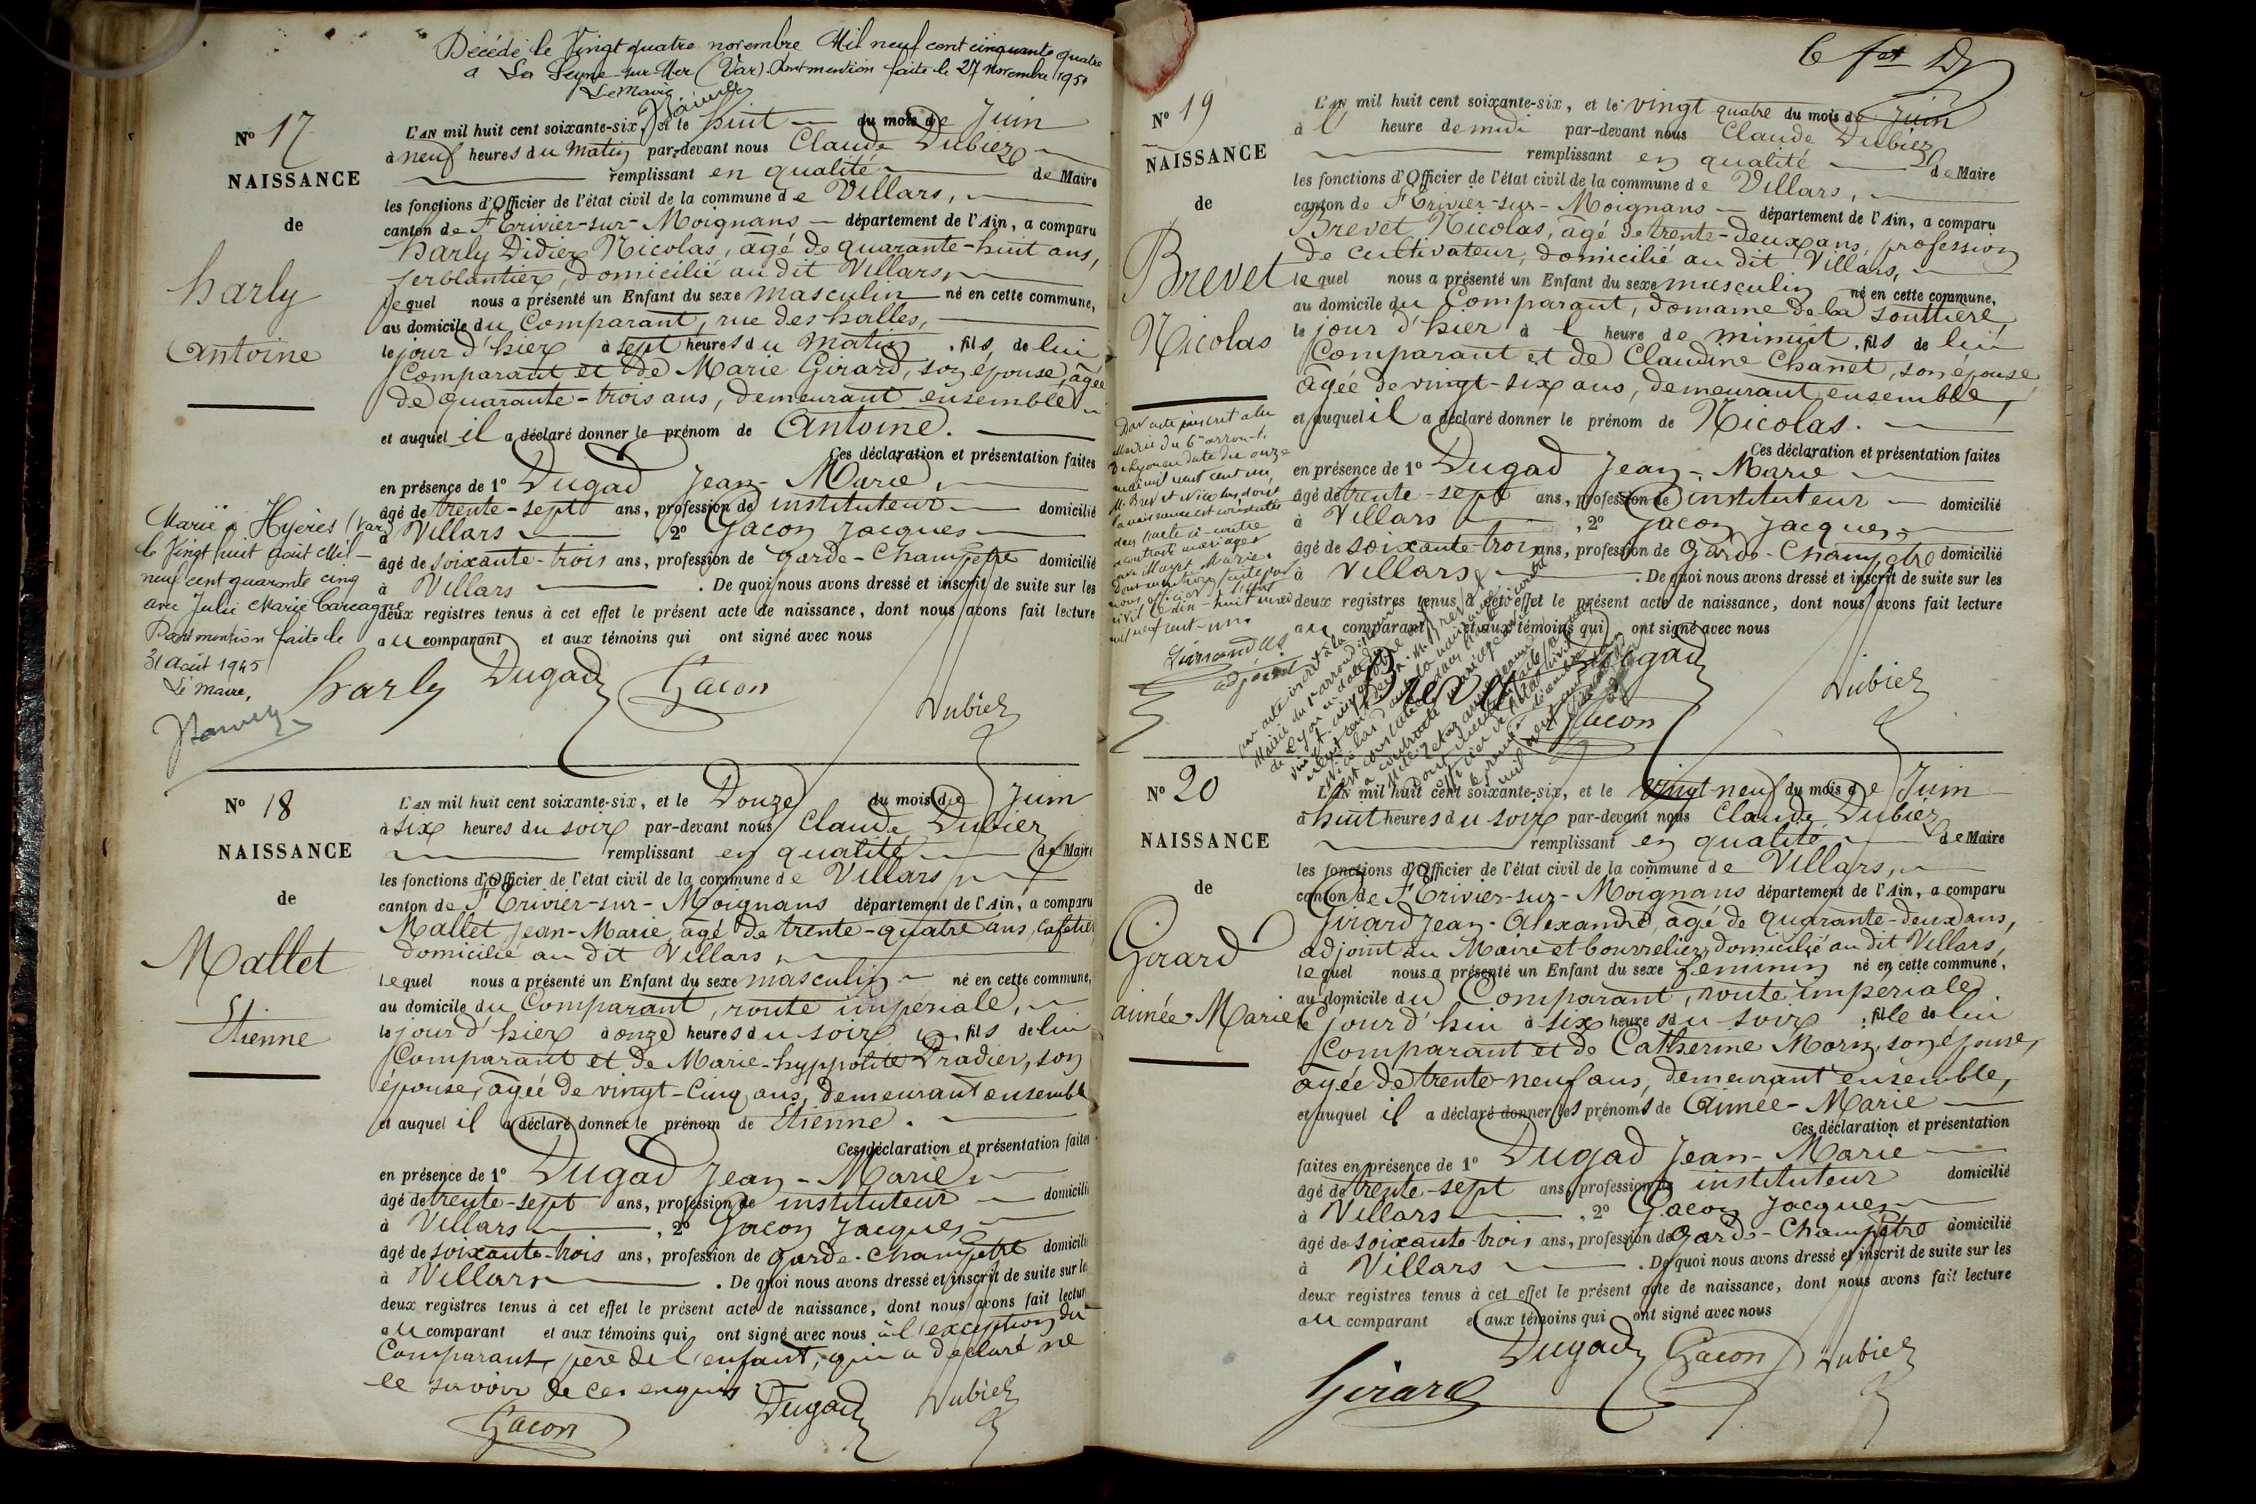 Décédé le Vingt quatre novembre Mil neuf cent cinquante quatre
a La Seyne-sur-Mer (Var). Dont mention faite le 27 novembre 195
Le Maire
N° 17
NAISSANCE
de
harly
Antoine
L'AN mil huit cent soixante-six, et le huit du mois de Juin
à neuf heures du Matin par-devant nous Claude Dubiez
remplissant en qualité de Maire
les fonctions d'Officier de l'état civil de la commune de Villars,
canton de St Trivier-sur-Moignans département de l'Ain, a comparu
harly Didier Nicolas, agé de quarante-huit ans,
ferblantier, domicilié au dit Villars,
lequel nous a présenté un Enfant du sexe masculin né en cette commune,
au domicile du Comparant, rue des halles,
le jour d'hier à sept heures du Matin, fils de lui
Comparant et de Marie Girard, son épouse, agée
de quarante-trois ans, demeurant ensemble
et auquel il a déclaré donner le prénom de Antoine.
Ces déclaration et présentation faites
en présence de 1° Dugad Jean-Marie,
âgé de trente-sept ans, profession de instituteur domicilié
à Villars, 2° Gacon Jacques
âgé de soixante-trois ans, profession de garde-Champêtre domicilié
à Villars. De quoi nous avons dressé et inscrit de suite sur les
deux registres tenus à cet effet le présent acte de naissance, dont nous avons fait lecture
au comparant et aux témoins qui ont signé avec nous
harly Dugad Gacon Dubiez
Marié à Hyères (Var)
le Vingt huit août Mil
neuf cent quarante cinq
avec Julie Marie Carcagne
Dont mention faite le
31 Août 1945
Le Maire,
N° 18
NAISSANCE
de
Mallet
Etienne
L'AN mil huit cent soixante-six, et le Douze du mois de Juin
à six heures du soir par-devant nous Claude Dubiez
remplissant en qualité de Maire
les fonctions d'Officier de l'état civil de la commune de Villars,
canton de St Trivier-sur-Moignans département de l'Ain, a comparu
Mallet Jean-Marie, agé de trente-quatre ans, Cafetier,
domicilié au dit Villars,
lequel nous a présenté un Enfant du sexe masculin né en cette commune,
au domicile du Comparant, route impériale,
le jour d'hier à onze heures du soir, fils de lui
Comparant et de Marie-hyppolite Pradier, son
épouse, agée de vingt-cinq ans, demeurant ensemble
et auquel il a déclaré donner le prénom de Etienne.
Ces déclaration et présentation faites
en présence de 1° Dugad Jean-Marie,
âgé de trente-sept ans, profession de instituteur domicilié
à Villars, 2° Gacon Jacques
âgé de soixante-trois ans, profession de garde-Champêtre domicilié
à Villars. De quoi nous avons dressé et inscrit de suite sur les
deux registres tenus à cet effet le présent acte de naissance, dont nous avons fait lecture
au comparant et aux témoins qui ont signé avec nous à l'exception du
Comparant, père de l'enfant, qui a déclaré ne
le savoir de ces enquis.
Gacon Dugad Dubiez
N° 19
NAISSANCE
de
Brevet
Nicolas
L'AN mil huit cent soixante-six, et le vingt quatre du mois de Juin
à l heure de midi par-devant nous Claude Dubiez
remplissant en qualité de Maire
les fonctions d'Officier de l'état civil de la commune de Villars,
canton de St Trivier-sur-Moignans département de l'Ain, a comparu
Brevet, Nicolas, agé de trente-deux ans, profession
de cultivateur, domicilié au dit Villars,
lequel nous a présenté un Enfant du sexe masculin né en cette commune,
au domicile du Comparant, domaine de la
le jour d'hier à l heure de minuit, fils de lui
Comparant et de Claudine Chanet, son épouse,
agée de vingt-six ans, demeurant ensemble,
et auquel il a déclaré donner le prénom de Nicolas.
Ces déclaration et présentation faites
en présence de 1° Dugad Jean-Marie
âgé de trente-sept ans, profession de instituteur domicilié
à Villars, 2° Gacon Jacques
âgé de soixante-trois ans, profession de garde-Champêtre domicilié
à Villars. De quoi nous avons dressé et inscrit de suite sur les
deux registres tenus à cet effet le présent acte de naissance, dont nous avons fait lecture
au comparant et aux témoins qui ont signé avec nous
Brevet Dugad Gacon Dubiez
Par acte inscrit a la
Mairie du 6e arron-t
de Lyon en date du onze
neuf cent un
M. Brevet Nicolas dont
la naissance est constatée
dans l'acte ci-contre
a contracté mariage
avec
dont mention faite par
nous officier de l'état
civil le dix-huit
mil neuf cent-un.
adjoint
N° 20
NAISSANCE
de
Girard
aimée-Marie
L'AN mil huit cent soixante-six, et le vingt neuf du mois de Juin
à huit heures du soir par-devant nous Claude Dubiez
remplissant en qualité de Maire
les fonctions d'Officier de l'état civil de la commune de Villars,
canton de St Trivier-sur-Moignans département de l'Ain, a comparu
Girard Jean-Alexandre, agé de quarante-deux ans,
adjoint au Maire et bourrelier, domicilié au dit Villars,
lequel nous a présenté un Enfant du sexe féminin né en cette commune,
au domicile du Comparant, route impériale
le jour d'hui à six heures du soir, fille de lui
Comparant et de Catherine Morin, son épouse,
agée de trente-neuf ans, demeurant ensemble,
et auquel il a déclaré donner les prénoms de Aimée-Marie
Ces déclaration et présentation
faites en présence de 1° Dugad Jean-Marie
âgé de trente-sept ans, profession de instituteur domicilié
à Villars, 2° Gacon Jacques
âgé de soixante-trois ans, profession de garde-Champêtre domicilié
à Villars. De quoi nous avons dressé et inscrit de suite sur les
deux registres tenus à cet effet le présent acte de naissance, dont nous avons fait lecture
au comparant et aux témoins qui ont signé avec nous
Girard Dugad Gacon Dubiez